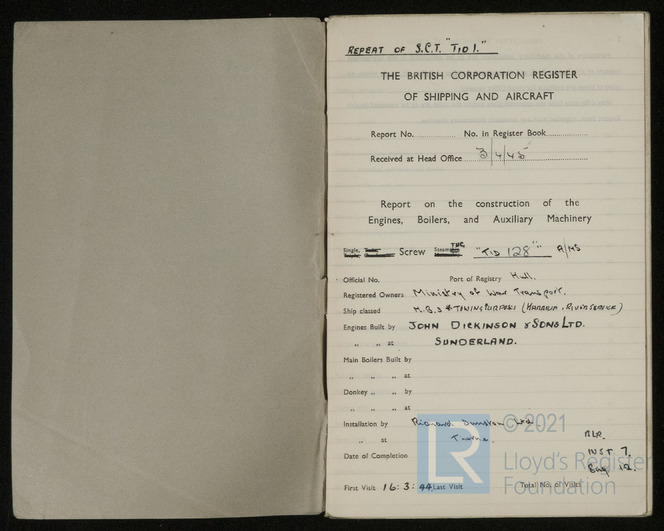 REPEAT OF S.C.T. "TID 1."
THE BRITISH CORPORATION REGISTER
OF SHIPPING AND AIRCRAFT
Report No. No. in Register Book
Received at Head Office 3/4/45
Report on the construction of the
Engines, Boilers, and Auxiliary Machinery
Single, Screw Steam TUG, "TID 128"
Official No. Port of Registry Hull.
Registered Owners Ministry of War Transport.
Ship classed M.B.S * TOWING PURPOSES (HARBOUR & RIVER SERVICE)
Engines Built by JOHN DICKINSON & SONS LTD.
" " at SUNDERLAND.
Main Boilers Built by
" " " at
Donkey " " by
" " " at
Installation by Richard Dunston Ltd.
" at Thorne.
BLR.
INST 7.
Date of Completion
Eng. 12.
First Visit 16:3:44 Last Visit Total No. of Visits
© 2021
LR Lloyd's Register
Foundation